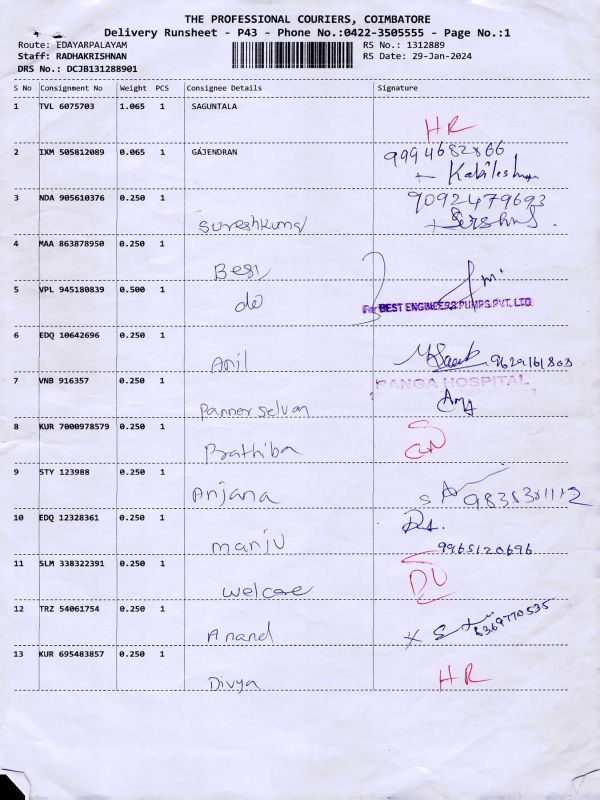 THE PROFESSIONAL COURIERS, COIMBATORE
Delivery Runsheet - P43 - Phone No.:0422-3505555 - Page No.:1
Route: EDAYARPALAYAM RS No.: 1312889
Staff: RADHAKRISHNAN RS Date: 29-Jan-2024
DRS No.: DCJB131288901
S No Consignment No Weight PCS Consignee Details Signature
1 TVL 6075703 1.065 1 SAGUNTALA
HR
2 IXM 505812089 0.065 1 GAJENDRAN 9994682866
3 NDA 905610376 0.250 1 9092479693
Sureshkumar
4 MAA 863878950 0.250 1
Best
5 VPL 945180839 0.500 1
do For BEST ENGINEERS PUMPS PVT. LTD.
6 EDQ 10642696 0.250 1
Anil 9629161803
7 VNB 916357 0.250 1 PANGA HOSPITAL
Panner selvan
8 KUR 7000978579 0.250 1
Prathiba
9 STY 123988 0.250 1
Anjana 9838381112
10 EDQ 12328361 0.250 1
manju 9965120696
11 SLM 338322391 0.250 1
welcare DU
12 TRZ 54061754 0.250 1
Anand 6369770535
13 KUR 695483857 0.250 1
Divya HR